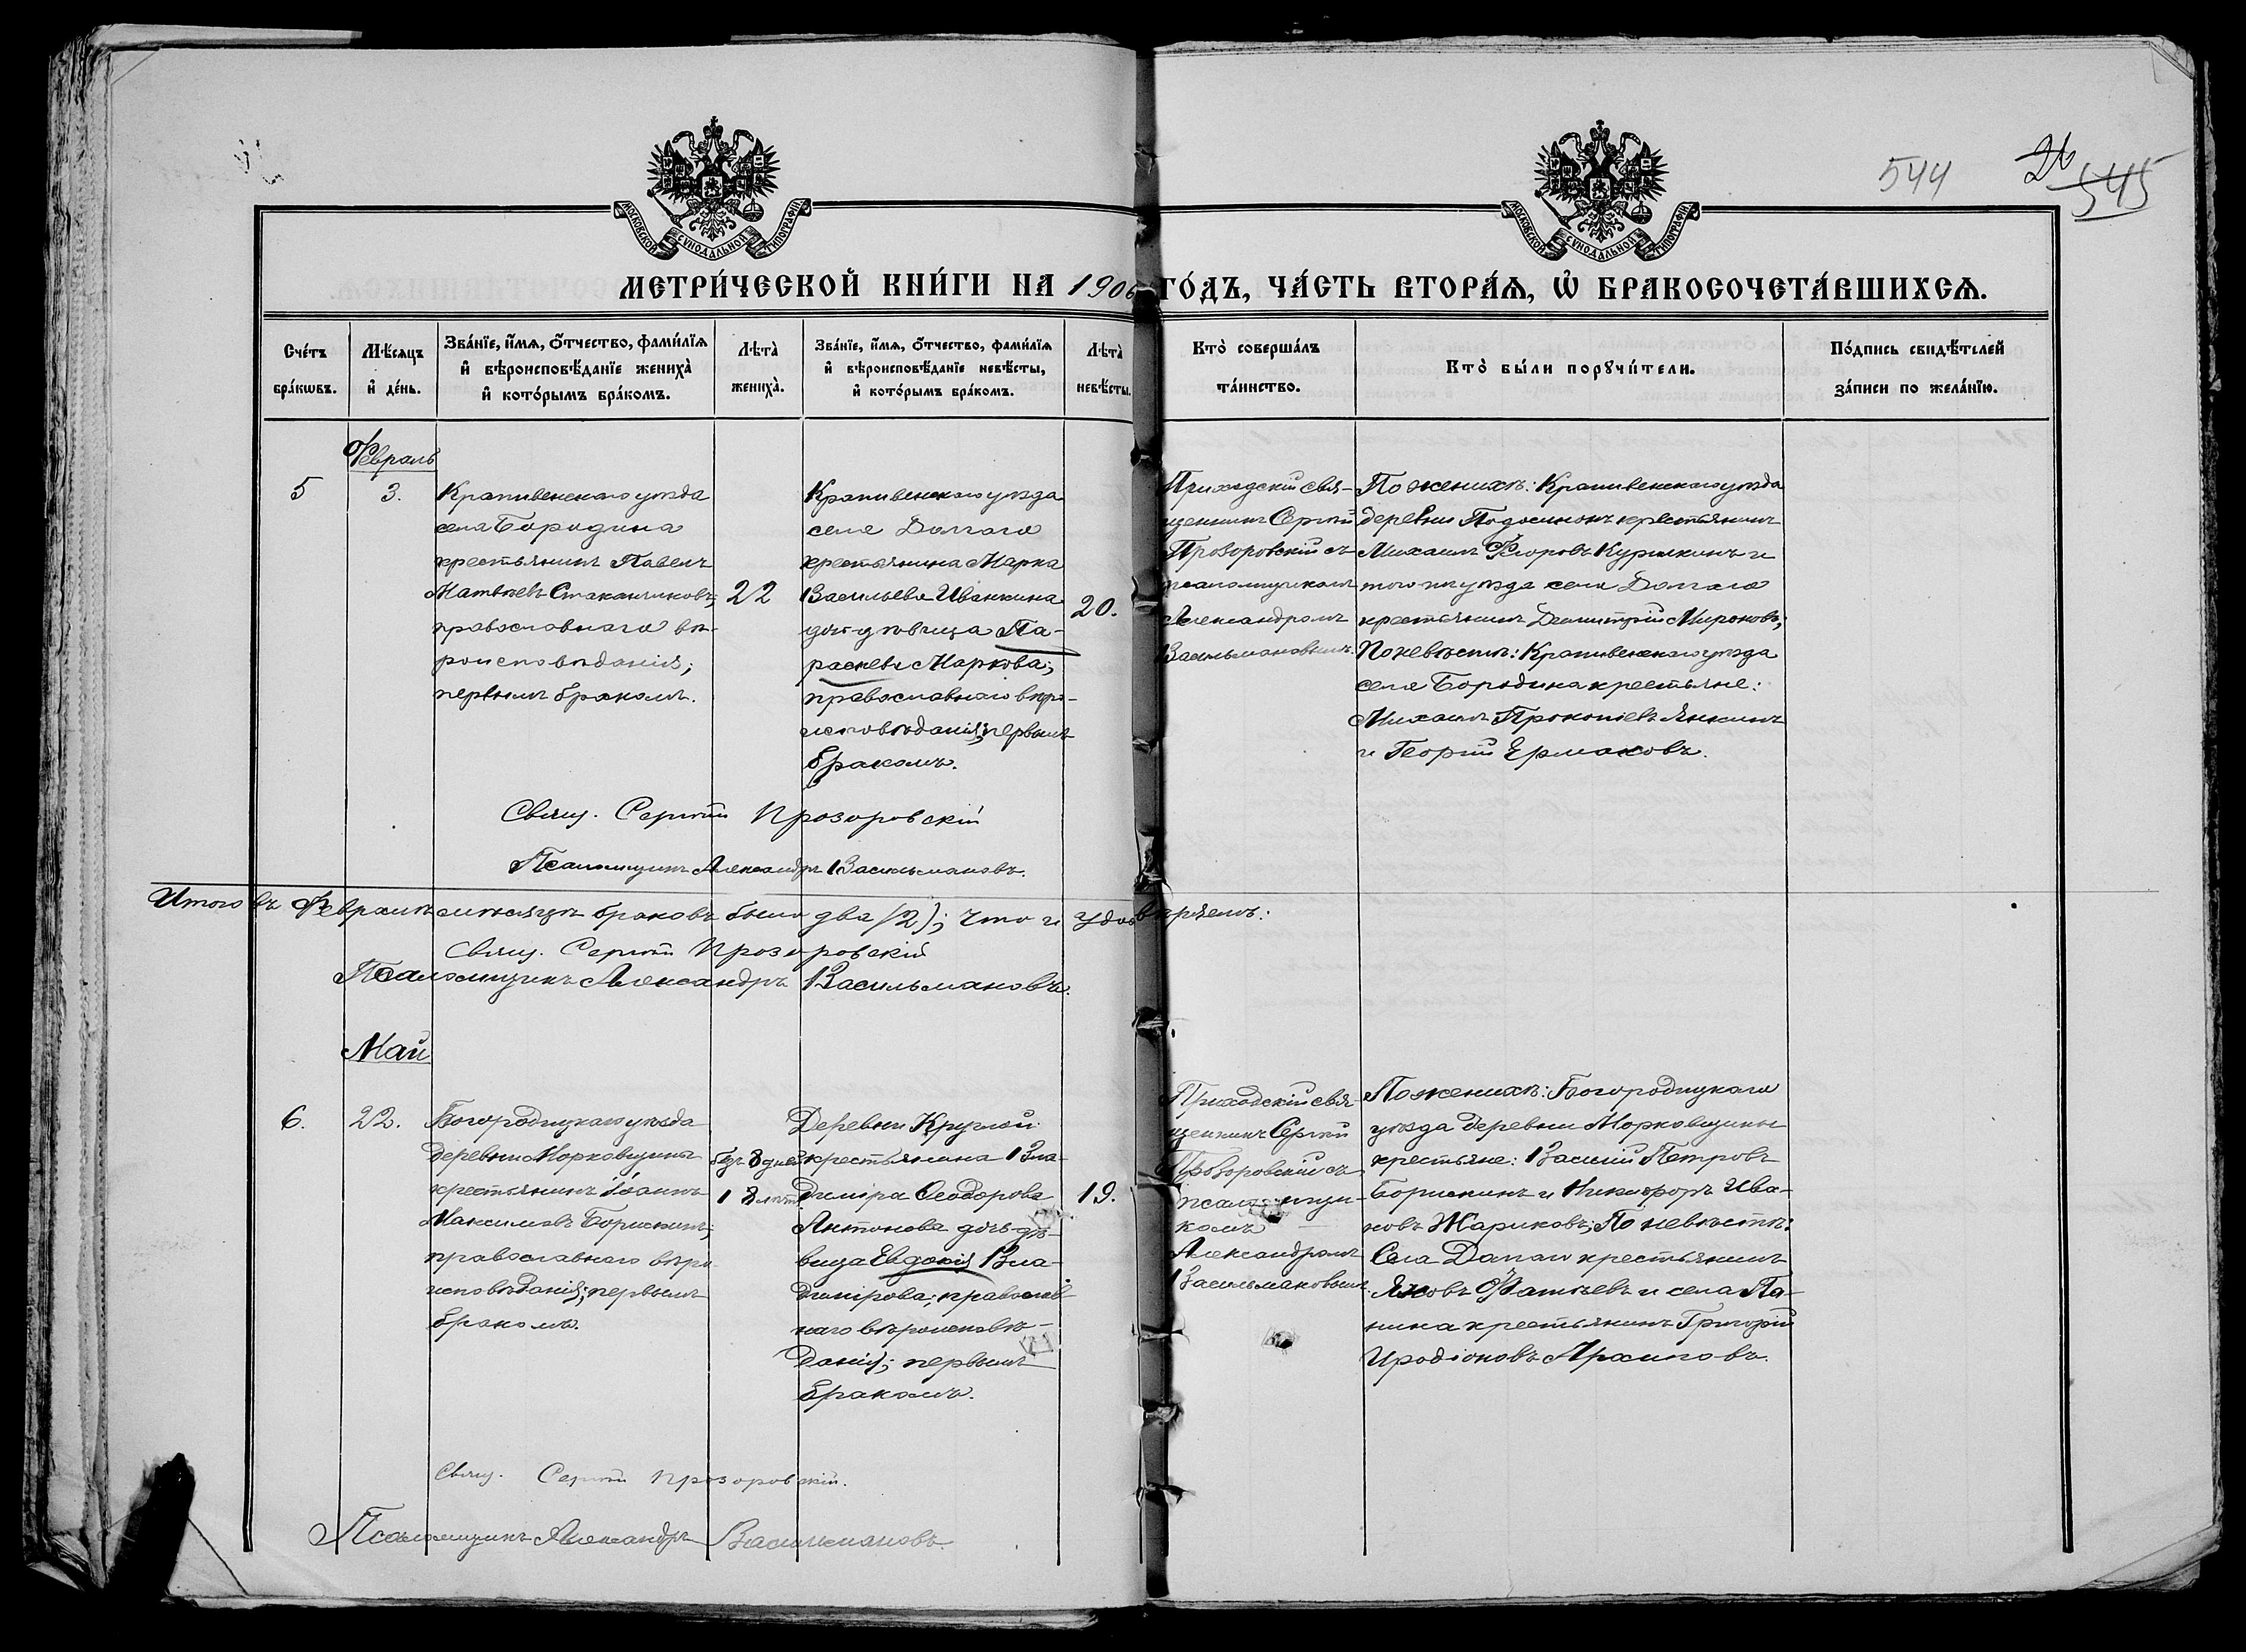 МОСКОВСКОЙ СѴНОДАЛЬНОЙ ТИПОГРАФІИ
МОСКОВСКОЙ СѴНОДАЛЬНОЙ ТИПОГРАФІИ
544
26
545
МЕТРИ́ЧЕСКОЙ КНИ́ГИ НА 1906 ГО́ДЪ, ЧА́СТЬ ВТОРА́Ѧ, Ѽ БРАКОСОЧЕТА́ВШИХСѦ.
Сче́тъ бра́кѡвъ.
Мѣ́сяцъ и҆ де́нь.
Зва́нїе, и҆́мѧ, ѻ҆́тчество, фами́лїѧ и҆ вѣроисповѣ́данїе жениха̀ и҆ кото́рымъ бра́комъ.
Лѣта̀ жениха̀.
Зва́нїе, и҆́мѧ, ѻ҆́тчество, фами́лїѧ и҆ вѣроисповѣ́данїе невѣ́сты, и҆ кото́рымъ бра́комъ.
Лѣта̀ невѣ́сты.
Кто̀ соверша́лъ та́инство.
Кто̀ бы́ли порꙋчи́тели.
По́дпись свидѣ́телей за́писи по жела́нїю.
Февраль
5
3.
Крапивенскаго уѣзда
села Бородина
крестьянинъ Павелъ
Матвѣевъ Стаканчиковъ;
православнаго вѣ-
роисповѣданія;
первымъ бракомъ.
22
Крапивенскаго уѣзда
села Долгаго
крестьянина Марка
Васильева Иванкина
дочь дѣвица Па-
раскева Маркова;
православнаго вѣро-
исповѣданія; первымъ
бракомъ.
20.
Приходскій свя-
щенникъ Сергій
Прозоровскій съ
псаломщикомъ
Александромъ
Васильмановымъ.
По женихѣ: Крапивенскаго уѣзда
деревни Подосинокъ крестьянинъ
Михаилъ Ѳеодоровъ Курилкинъ и
того же уѣзда села Долгаго
крестьянинъ Димитрій Мироновъ;
По невѣстѣ: Крапивенскаго уѣзда
села Бородина крестьяне:
Михаилъ Прокопіевъ Янкинъ
и Георгій Ермаковъ.
Свящ. Сергій Прозоровскій
Псаломщикъ Александръ Васильмановъ.
Итого въ Февралѣ мѣсяцѣ браковъ было два (2); что и удостовѣряемъ:
Свящ. Сергій Прозоровскій
Псаломщикъ Александръ Васильмановъ.
Май
6.
22.
Богородицкаго уѣзда
деревни Морковщины
крестьянинъ Іоаннъ
Максимовъ Борискинъ;
православнаго вѣро-
исповѣданія; первымъ
бракомъ.
безъ 8 дней
18 лѣтъ
Деревни Круглой
крестьянина Вла-
диміра Ѳеодорова
Антонова дочь дѣ-
вица Евдокія Вла-
димірова; православ-
наго вѣроисповѣ-
данія; первымъ
бракомъ.
19.
Приходскій свя-
щенникъ Сергій
Прозоровскій съ
псаломщи-
комъ
Александромъ
Васильмановымъ.
По женихѣ: Богородицкаго
уѣзда деревни Морковщины
крестьяне: Василій Петровъ
Борискинъ и Никифоръ Ива-
новъ Жариковъ; По невѣстѣ:
Села Долгаго крестьянинъ
Яковъ Фатѣевъ и села Па-
нина крестьянинъ Григорій
Иродіоновъ Архиповъ.
Свящ. Сергій Прозоровскій.
Псаломщикъ Александръ Васильмановъ.